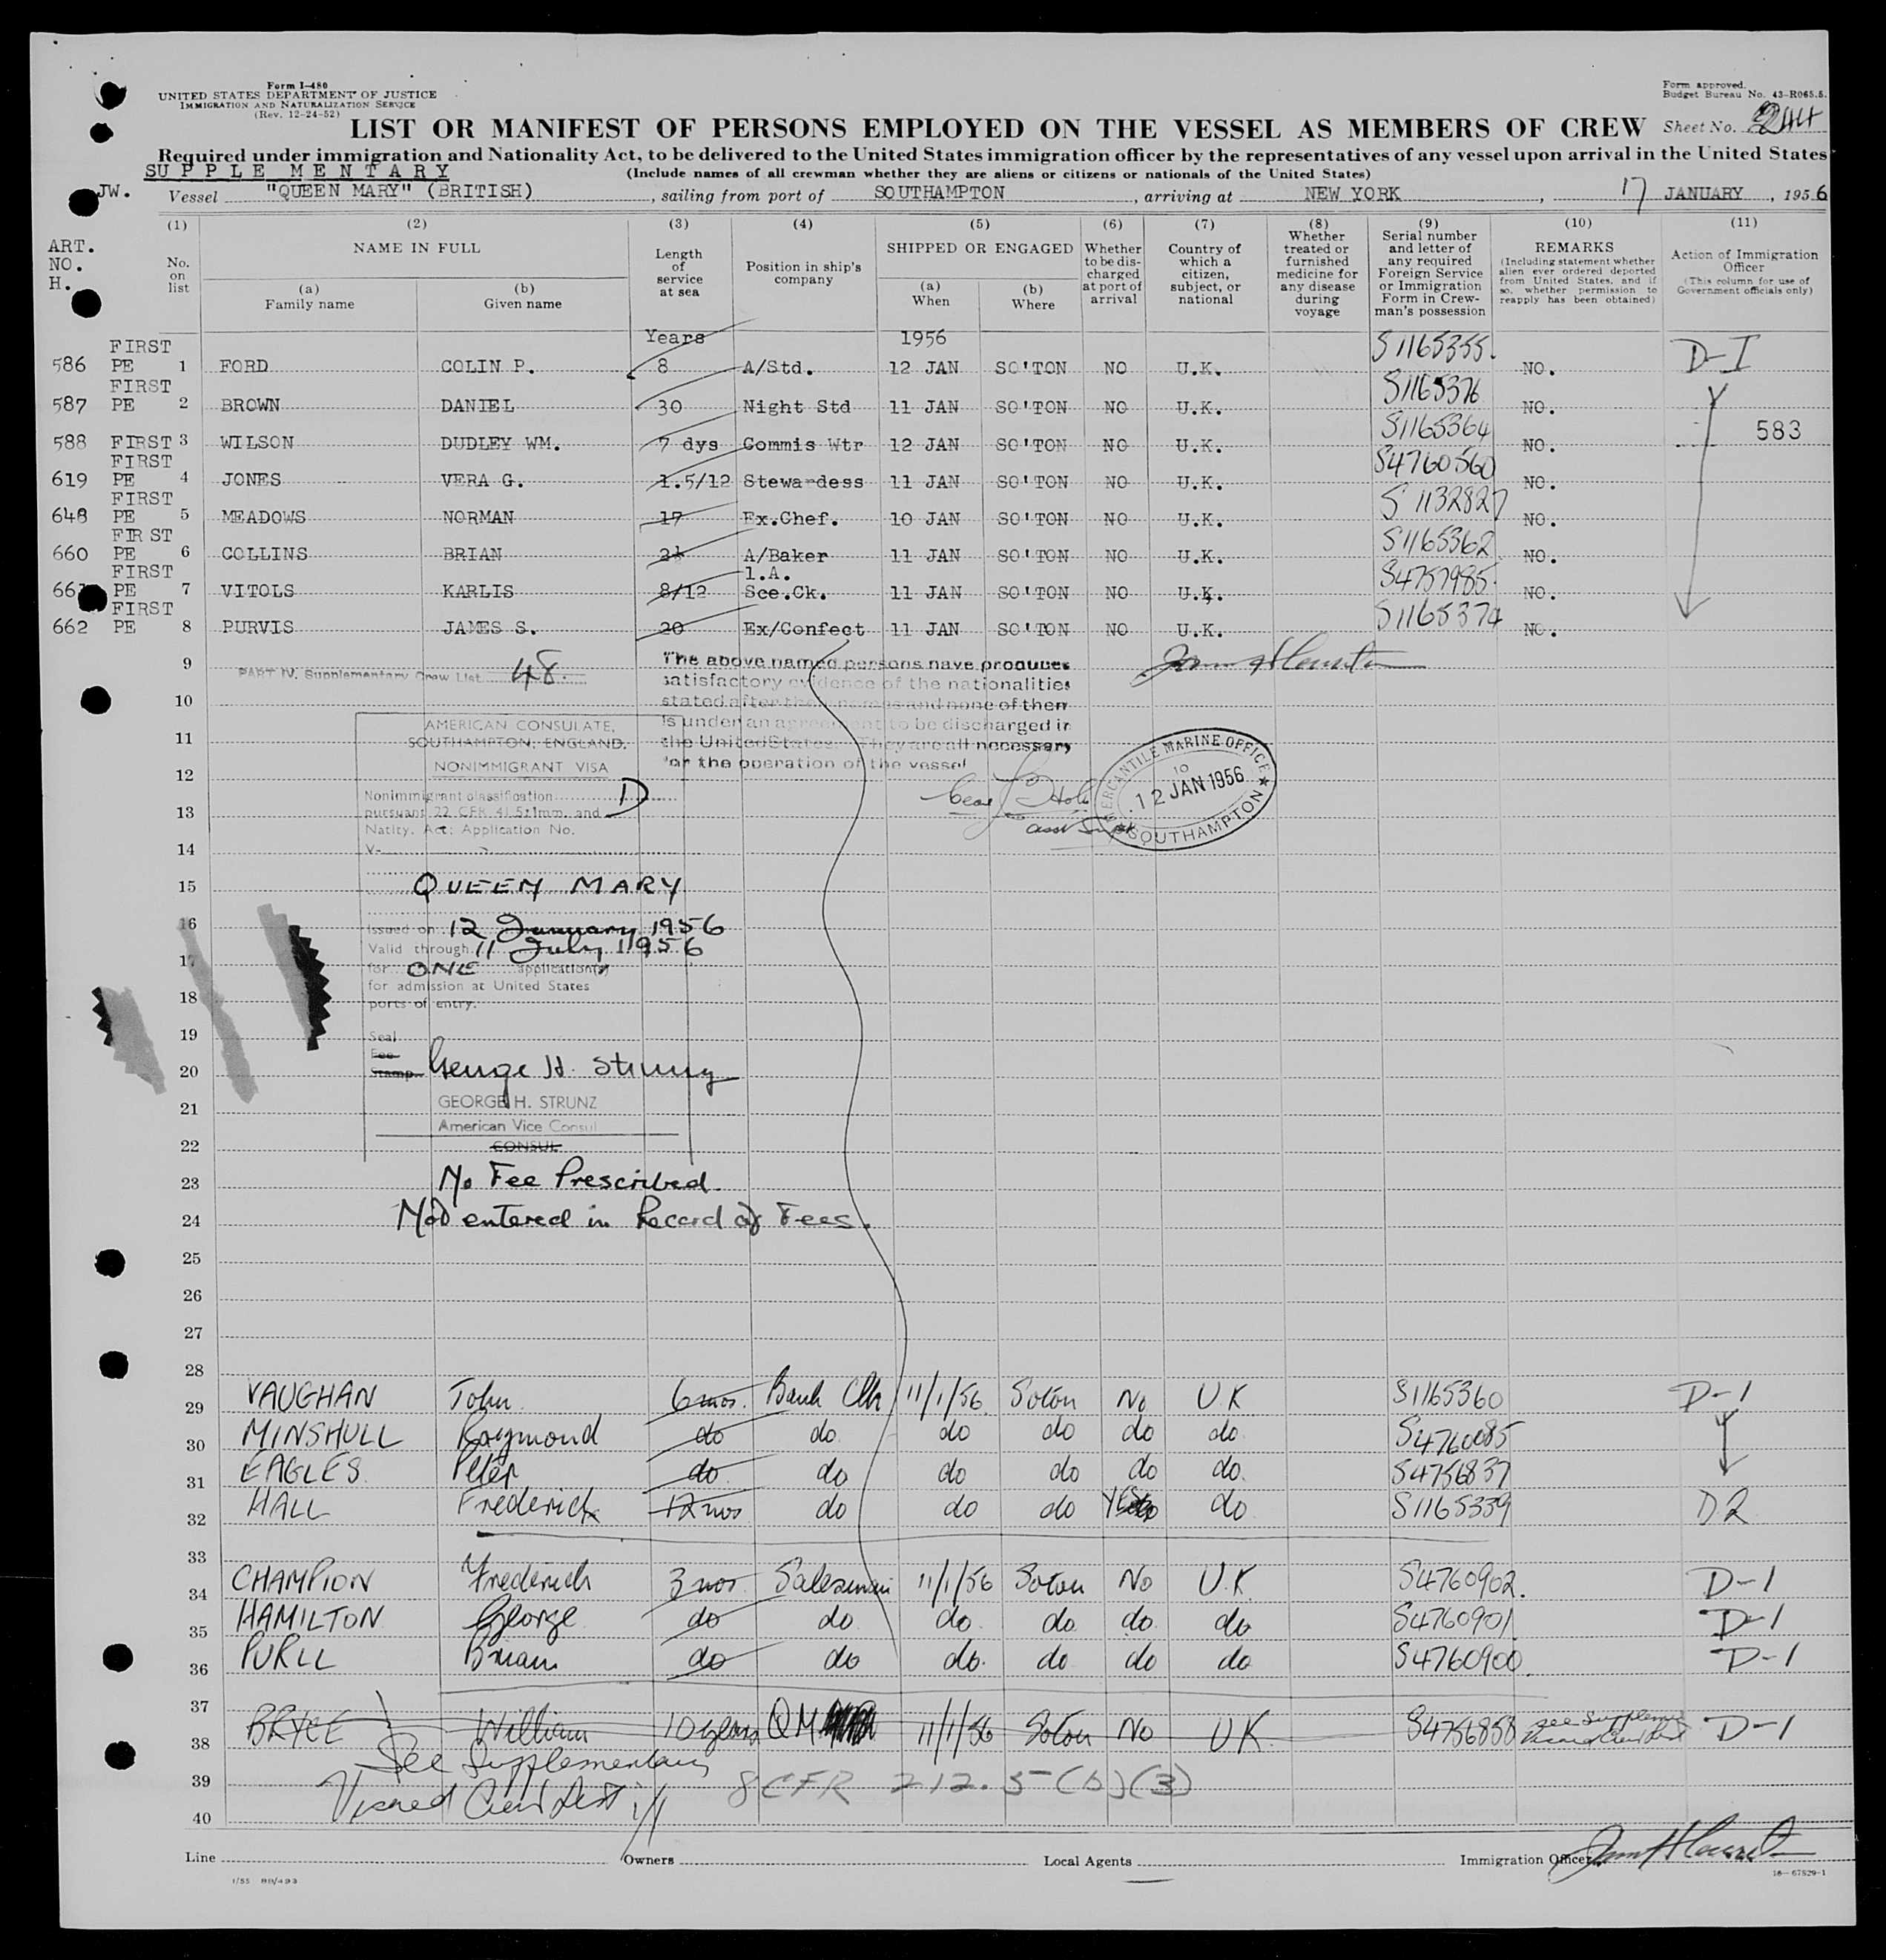 Form I-480
UNITED STATES DEPARTMENT OF JUSTICE
IMMIGRATION AND NATURALIZATION SERVICE
(Rev. 12-24-52)
Form approved.
Budget Bureau No. 43-R065.5.
LIST OR MANIFEST OF PERSONS EMPLOYED ON THE VESSEL AS MEMBERS OF CREW
Sheet No. 244
Required under immigration and Nationality Act, to be delivered to the United States immigration officer by the representatives of any vessel upon arrival in the United States
SUPPLEMENTARY
(Include names of all crewman whether they are aliens or citizens or nationals of the United States)
JW. Vessel "QUEEN MARY" (BRITISH), sailing from port of SOUTHAMPTON, arriving at NEW YORK, 17 JANUARY, 1956
(1) (2) (3) (4) (5) (6) (7) (8) (9) (10) (11)
ART. NO. H.
No. on list
NAME IN FULL
(a) Family name
(b) Given name
Length of service at sea
Position in ship's company
SHIPPED OR ENGAGED
(a) When
(b) Where
Whether to be discharged at port of arrival
Country of which a citizen, subject, or national
Whether treated or furnished medicine for any disease during voyage
Serial number and letter of any required Foreign Service or Immigration Form in Crewman's possession
REMARKS
(Including statement whether alien ever ordered deported from United States, and if so, whether permission to reapply has been obtained)
Action of Immigration Officer
(This column for use of Government officials only)
Years 1956
586 FIRST PE 1 FORD COLIN P. 8 A/Std. 12 JAN SO'TON NO U.K. S1165355. NO. D-I
587 FIRST PE 2 BROWN DANIEL 30 Night Std 11 JAN SO'TON NO U.K. S1165376 NO.
588 FIRST 3 WILSON DUDLEY WM. 7 dys Commis Wtr 12 JAN SO'TON NO U.K. S1165364 NO. 583
619 FIRST PE 4 JONES VERA G. 1.5/12 Stewardess 11 JAN SO'TON NO U.K. S4760560 NO.
648 FIRST PE 5 MEADOWS NORMAN 17 Ex.Chef. 10 JAN SO'TON NO U.K. S1132827 NO.
660 FIRST PE 6 COLLINS BRIAN A/Baker 11 JAN SO'TON NO U.K. S1165362 NO.
661 FIRST PE 7 VITOLS KARLIS 8/12 1.A. Sce.Ck. 11 JAN SO'TON NO U.K. S4757985. NO.
662 FIRST PE 8 PURVIS JAMES S. 20 Ex/Confect 11 JAN SO'TON NO U.K. S1165374 NO.
9
PART IV. Supplementary Crew List 48.
The above named persons have produced
satisfactory evidence of the nationalities
stated after their names and none of them
is under an agreement to be discharged in
the United States. They are all necessary
for the operation of the vessel
10
11
12
13
14
AMERICAN CONSULATE,
SOUTHAMPTON, ENGLAND.
NONIMMIGRANT VISA
Nonimmigrant classification D
pursuant 22 CFR 41.5 Immn. and
Natlty. Act: Application No.
V-
MERCANTILE MARINE OFFICE
12 JAN 1956
SOUTHAMPTON
15
QUEEN MARY
16
Issued on 12 January 1956
Valid through 11 July 1956
17
for ONE application(s)
for admission at United States
18
ports of entry.
19
Seal
Fee
20
Stamp
George H. Strunz
21
GEORGE H. STRUNZ
American Vice Consul
22
CONSUL
23
No Fee Prescribed.
24
Not entered in Record of Fees.
25
26
27
28
29 VAUGHAN John 6 mos. Bank Clk 11/1/56 Soton No UK S1165360 D-1
30 MINSHULL Raymond do do do do do do S4760085
31 EAGLES Peter do do do do do do. S4756837
32 HALL Frederick 12 mos do do do YES do S1165339 D2
33
34 CHAMPION Frederick 3 mos. Salesman 11/1/56 Soton No U.K S4760902. D-1
35 HAMILTON George do do do. do do do S4760901 D-1
36 PURLL Brian do do do. do do do S4760900. D-1
37
38 BRYCE William 10 years QM 11/1/56 Soton No UK S4756858 D-1
See Supplementary
39
Visaed Crew List
8 CFR 212.5(b)(3)
40
Line Owners Local Agents Immigration Officer
1/55
16-67529-1